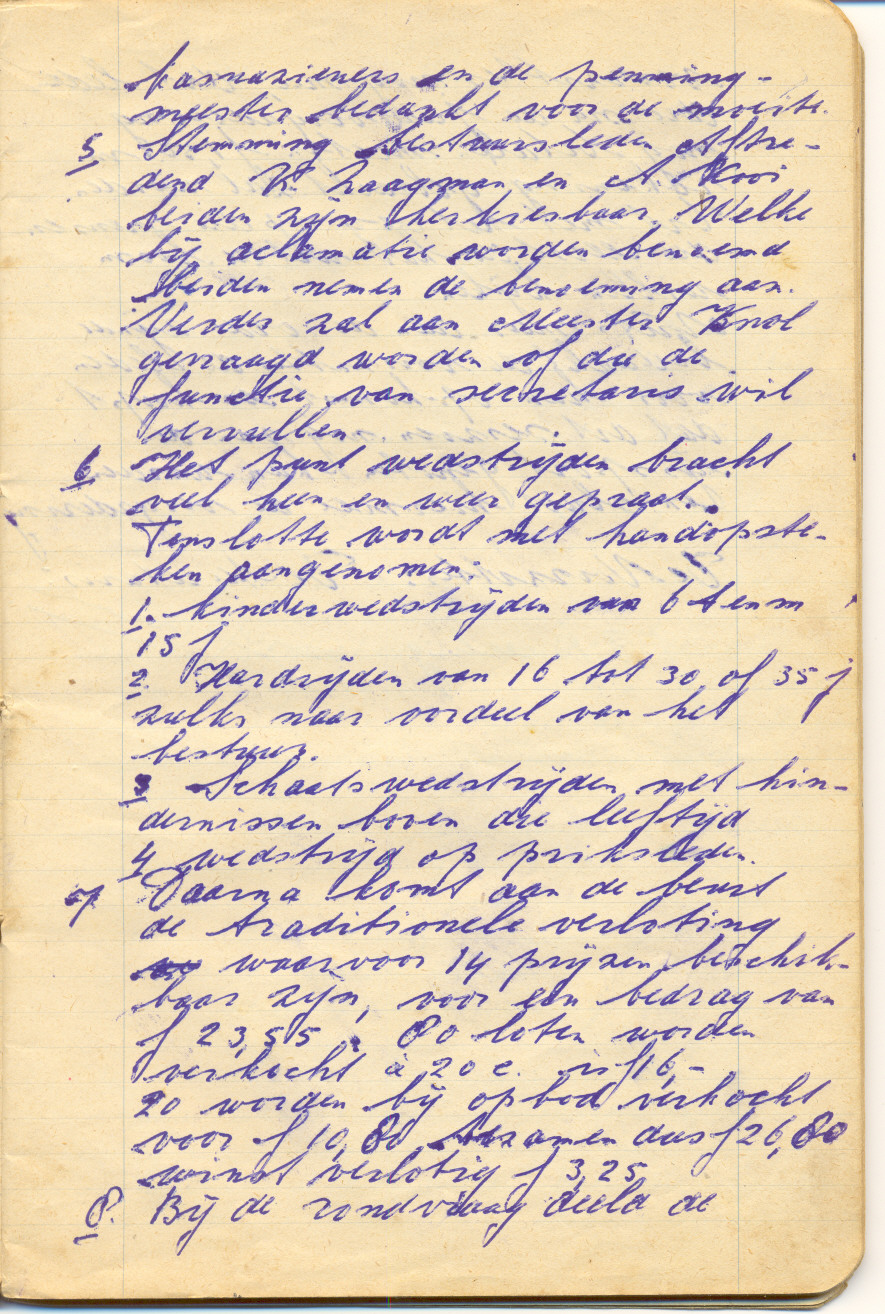 kasnazieners en de penning-
meester bedankt voor de moeite.
5 Stemming bestuursleden Aftre-
dend K. Zaagman en A Kooi
beiden zijn herkiesbaar. Welke
bij aclamatie worden benoemd
beiden nemen de benoeming aan.
Verder zal aan Meester Knol
gevraagd worden of die de
functie van secretaris wil
vervullen.
6 Het punt wedstrijden bracht
veel heen en weer gepraat.
Tenslotte wordt met handopste-
ken aangenomen:
1. kinderwedstrijden van 6 tenm
15 j
2 Hardrijden van 16 tot 30 of 35 j
zulks naar oordeel van het
bestuur.
3 Schaatswedstrijden met hin-
dernissen boven die leeftijd
4 wedstrijd op priksleden.
7 Daarna komt aan de beurt
de traditionele verloting
waarvoor 14 prijzen beschik-
baar zijn, voor een bedrag van
f 23,55. 80 loten worden
verkocht à 20 c. is f 16,-
20 worden bij opbod verkocht
voor f 10,80 tezamen dus f 26,80
winst verlotig f 3,25
8. Bij de rondvraag deeld de